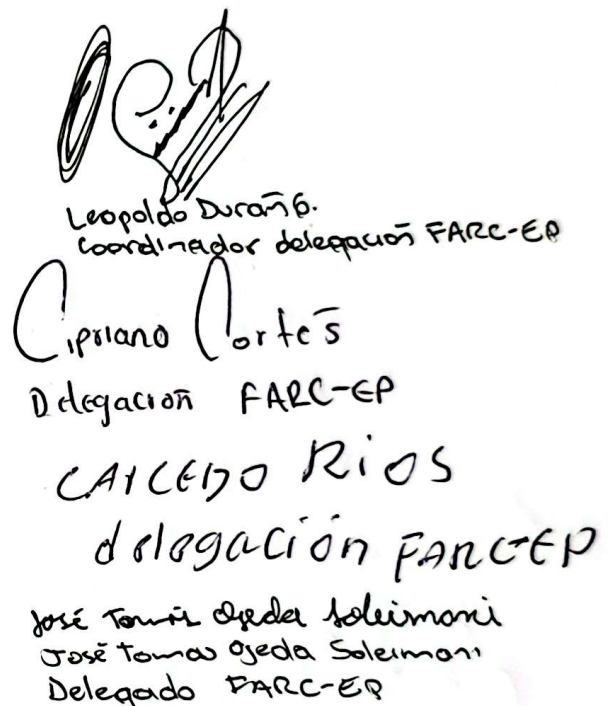 Leopoldo Durán G.
Coordinador delegación FARC-EP
Cipriano Cortés
Delegación FARC-EP
CAICEDO RioS
delegación FARC-EP
José Tomás Ojeda Soleimani
José Tomas Ojeda Soleimani
Delegado FARC-EP